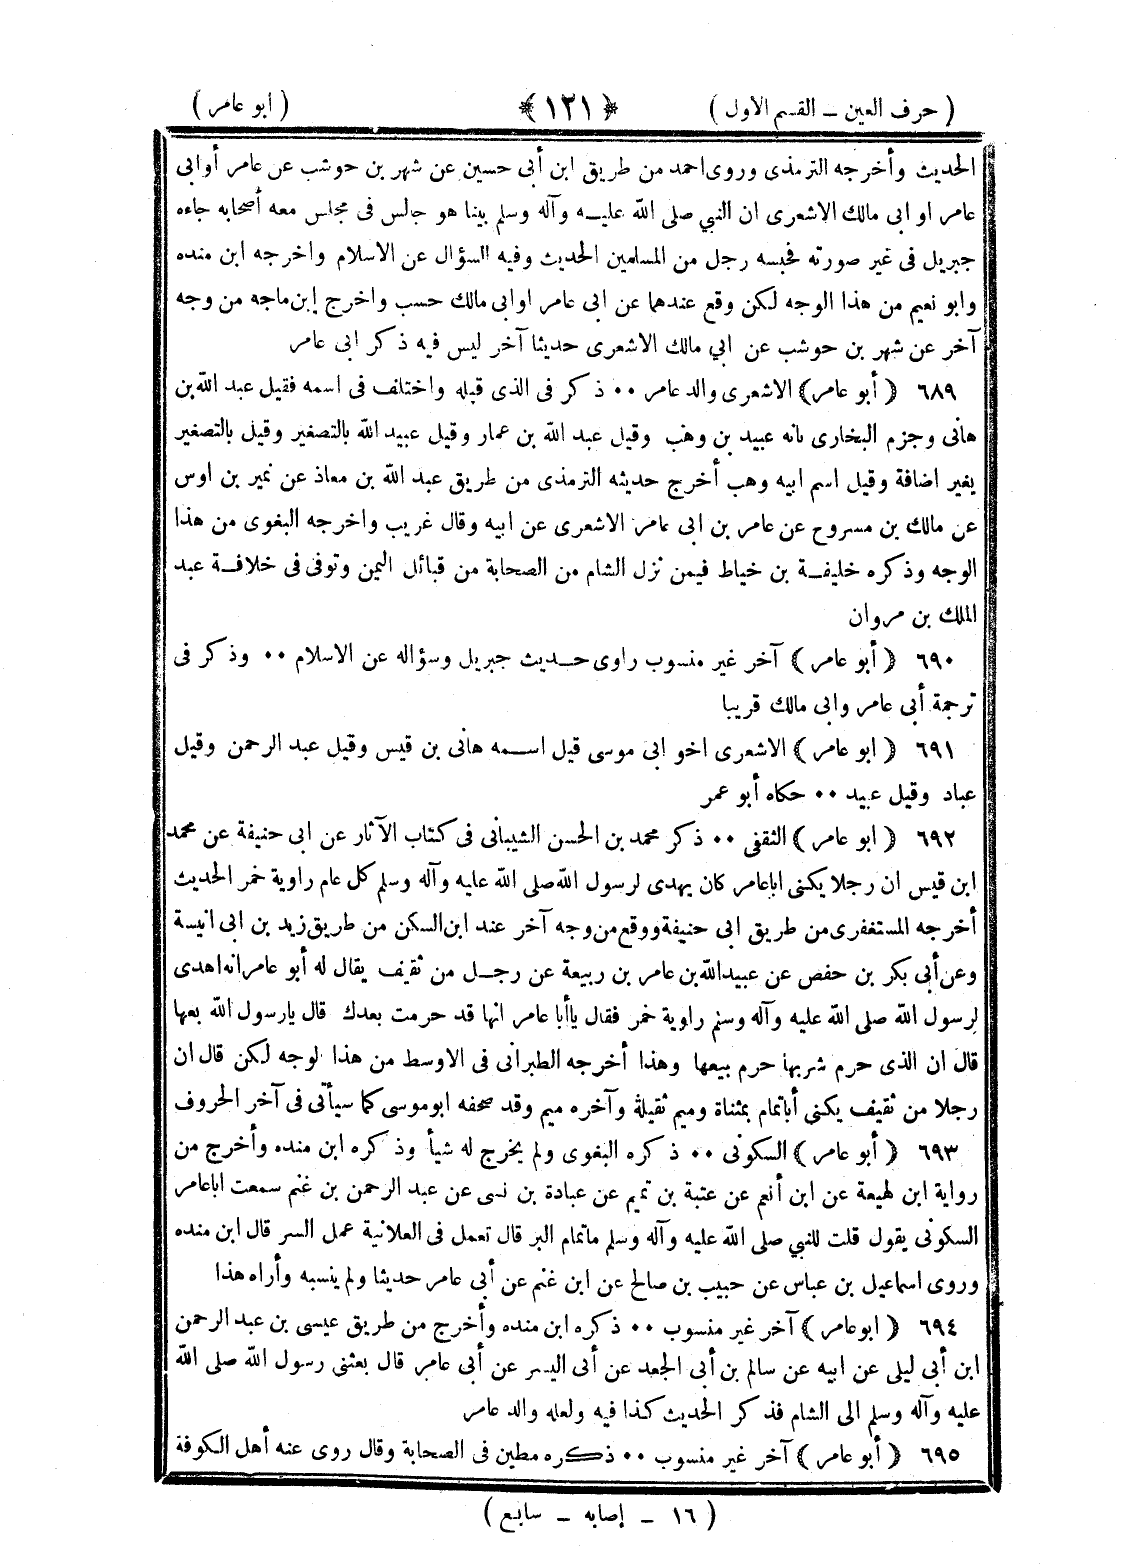 ( حرف العين ــ القسم الاول ) ﴿ ١٢١ ﴾ ( ابو عامر )
الحديث وأخرجه الترمذى وروى احمد من طريق ابن أبى حسين عن شهر بن حوشب عن عامر أوابى
عامر او ابى مالك الاشعرى ان النبي صلى الله عليه وآله وسلم بينا هو جالس فى مجلس معه أصحابه جاءه
جبريل فى غير صورته فحبسه رجل من المسلمين الحديث وفيه السؤال عن الاسلام واخرجه ابن منده
وابو نعيم من هذا الوجه لكن وقع عندهما عن ابى عامر اوابى مالك حسب واخرج إبن ماجه من وجه
آخر عن شهر بن حوشب عن ابي مالك الاشعرى حديثا آخر ليس فيه ذكر ابى عامر
٦٨٩ ﴿ أبو عامر ﴾ الاشعرى والد عامر ٠٠ ذكر فى الذى قبله واختلف فى اسمه فقيل عبد الله بن
هانى وجزم البخارى بانه عبيد بن وهب وقيل عبد الله بن عمار وقيل عبيد الله بالتصغير وقيل بالتصغير
يغير اضافة وقيل اسم ابيه وهب أخرج حديثه الترمذى من طريق عبد الله بن معاذ عن نمير بن اوس
عن مالك بن مسروح عن عامر بن ابى عامر الاشعرى عن ابيه وقال غريب واخرجه البغوى من هذا
الوجه وذكره خليفة بن خياط فيمن نزل الشام من الصحابة من قبائل اليمن وتوفى فى خلافة عبد
الملك بن مروان
٦٩٠ ﴿ أبو عامر ﴾ آخر غير منسوب راوى حديث جبريل وسؤاله عن الاسلام ٠٠ وذكر فى
ترجمة أبى عامر وابى مالك قريبا
٦٩١ ﴿ ابو عامر ﴾ الاشعرى اخو ابى موسى قيل اسمه هانى بن قيس وقيل عبد الرحمن وقيل
عباد وقيل عبيد ٠٠ حكاه أبو عمر
٦٩٢ ﴿ ابو عامر ﴾ الثقفى ٠٠ ذكر محمد بن الحسن الشيبانى فى كتاب الآثار عن ابى حنيفة عن محمد
ابن قيس ان رجلا يكنى اباعامر كان يهدى لرسول الله صلى الله عليه وآله وسلم كل عام راوية خمر الحديث
أخرجه المستغفرى من طريق ابى حنيفة ووقع من وجه آخر عند ابن السكن من طريق زيد بن ابى انيسة
وعن أبى بكر بن حفص عن عبيدالله بن عامر بن ربيعة عن رجل من ثقيف يقال له أبو عامر انه اهدى
لرسول الله صلى الله عليه وآله وسلم راوية خمر فقال ياأبا عامر انها قد حرمت بعدك قال يارسول الله بعها
قال ان الذى حرم شربها حرم بيعها وهذا أخرجه الطبرانى فى الاوسط من هذا لوجه لكن قال ان
رجلا من ثقيف يكنى أباتمام بمثناة وميم ثقيلة وآخره ميم وقد صحفه ابوموسى كما سيأتى فى آخر الحروف
٦٩٣ ﴿ أبو عامر ﴾ السكونى ٠٠ ذكره البغوى ولم يخرج له شيأ وذكره ابن منده وأخرج من
رواية ابن لهيعة عن ابن أنعم عن عتبة بن تميم عن عبادة بن نسى عن عبد الرحمن بن غنم سمعت اباعامر
السكونى يقول قلت للنبي صلى الله عليه وآله وسلم ماتمام البر قال تعمل فى العلانية عمل السر قال ابن منده
وروى اسماعيل بن عباس عن حبيب بن صالح عن ابن غنم عن أبى عامر حديثا ولم ينسبه وأراه هذا
٦٩٤ ﴿ ابوعامر ﴾ آخر غير منسوب ٠٠ ذكره ابن منده وأخرج من طريق عيسى بن عبد الرحمن
ابن أبى ليلى عن ابيه عن سالم بن أبى الجعد عن أبى اليسر عن أبى عامر قال بعثنى رسول الله صلى الله
عليه وآله وسلم الى الشام فذكر الحديث كذا فيه ولعله والد عامر
٦٩٥ ﴿ أبو عامر ﴾ آخر غير منسوب ٠٠ ذكره مطين فى الصحابة وقال روى عنه أهل الكوفة
( ١٦ ــ إصابه ــ سابع )